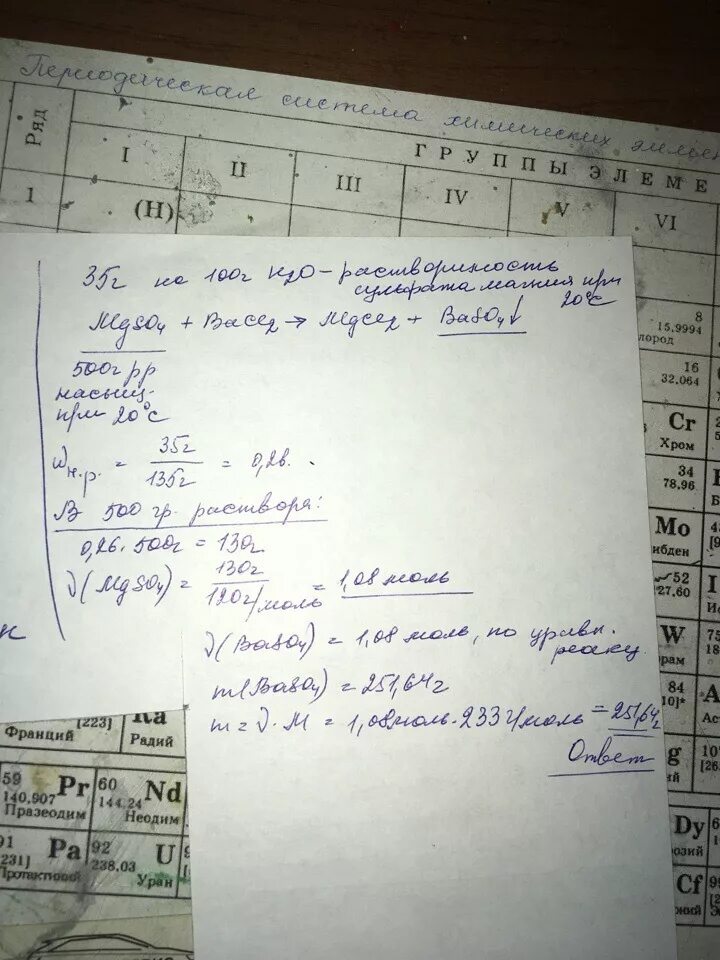 Периодическая система химических
ГРУППЫ ЭЛЕМЕ
Ряд
I II III IV V VI
1 (H)
35г на 100г H2O – растворимость
сульфата магния при
20°C
MgSO4 + BaCl2 → MgCl2 + BaSO4↓
500г рр
насыщ-
при 20°C
ωн.р. = 35г/135г = 0,26.
В 500 гр. раствора:
0,26·500г = 130г
ν(MgSO4) = 130г/120г/моль = 1,08 моль
ν(BaSO4) = 1,08 моль, по уравн.
реакц
m(BaSO4) = 251,64г
m = ν·M = 1,08моль·233г/моль = 251,64г
Ответ
к
8
15,9994
лород
16
32,064
Cr
Хром
34
78,96
Mo
ибден
52
127,60
I
W
рам
84
Po
[223]
Франций
Ra
Радий
59 Pr 60 Nd
140,907 144,24
Празеодим Неодим
91 Pa 92 U
[231] 238,03
Протактиний Уран
Dy
розий
Cf
рний